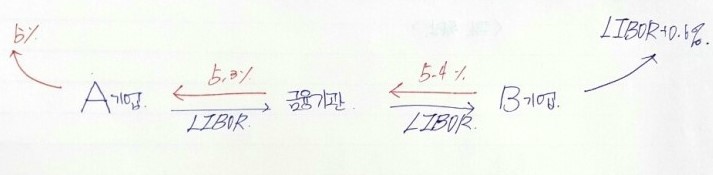 5%
LIBOR+0.6%.
5.3%
5.4%
A기업.
금융기관.
B기업.
LIBOR.
LIBOR.